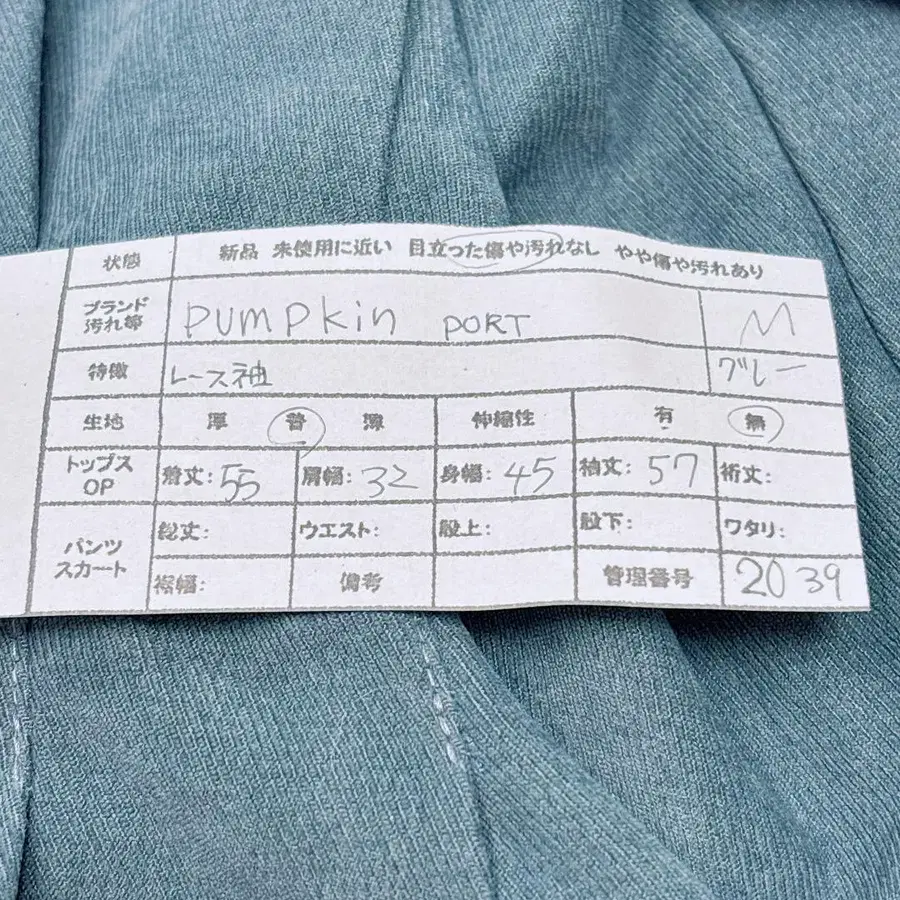 状態 新品 未使用に近い 目立った傷や汚れなし やや傷や汚れあり
ブランド 汚れ等 pumpkin PORT M
特徴 レース袖 グレー
生地 厚 普 薄 伸縮性 有 無
トップス OP 着丈: 55 肩幅: 32 身幅: 45 袖丈: 57 裄丈:
パンツ スカート 総丈: ウエスト: 股上: 股下: ワタリ:
裾幅: 備考 管理番号 2039